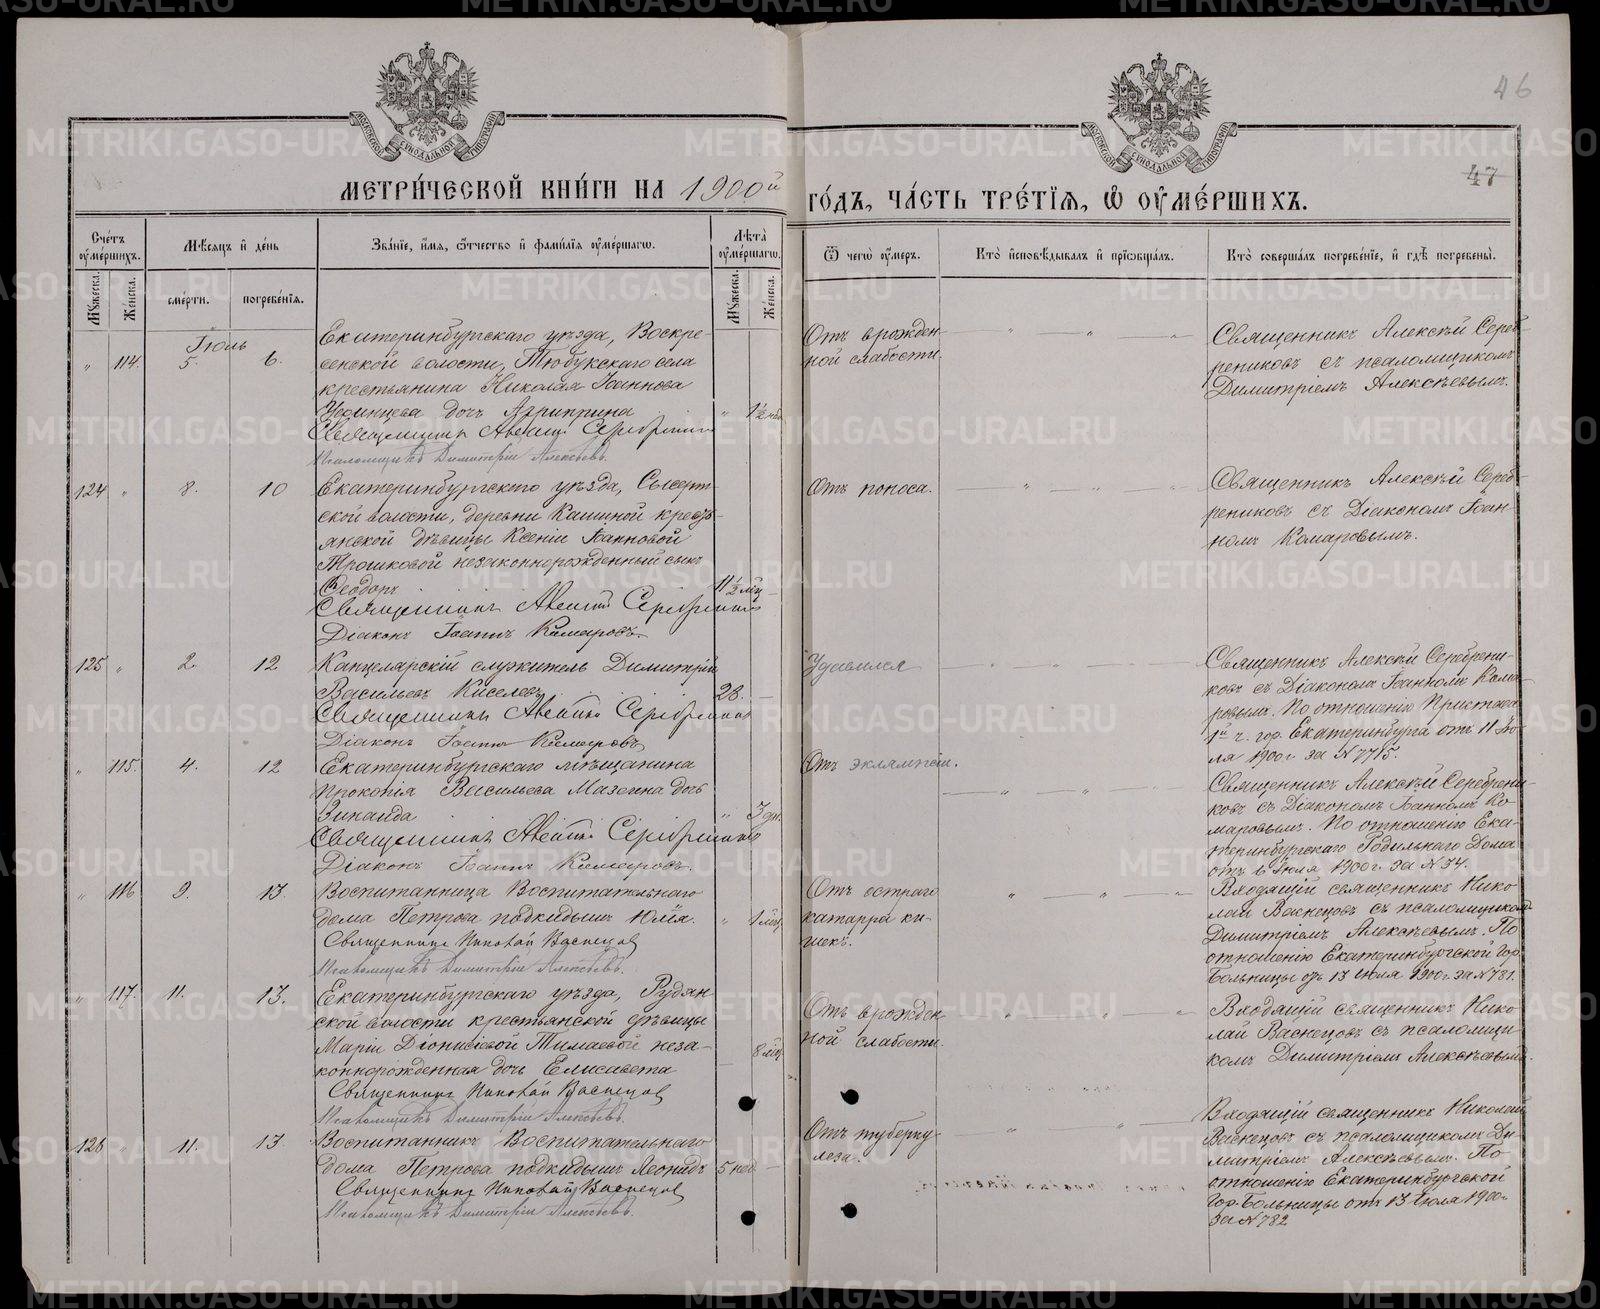 46
47
МЕТРИ́ЧЕСКОЙ КНИ́ГИ НА 1900й ГО́ДЪ, ЧА́СТЬ ТРЕ́ТІѦ, Ѡ ОУ҆МЕ́РШИХЪ.
МОСКОВСКОЙ СѴНОДАЛЬНОЙ ТИПОГРАФІИ
МОСКОВСКОЙ СѴНОДАЛЬНОЙ ТИПОГРАФІИ
Сче́тъ оу҆ме́ршихъ.
Мꙋ́жеска.
Же́нска.
Мѣ́сѧцъ и҆ де́нь
сме́рти.
погребе́нїѧ.
Зва́нїе, и҆́мѧ, ѻ҆́тчество и҆ фами́лїѧ оу҆ме́ршагѡ.
Лѣ́та оу҆ме́ршагѡ.
Мꙋ́жеска.
Же́нска.
Ѿ чегѡ̀ оу҆́меръ.
Кто̀ и҆сповѣ́дывалъ и҆ прїѡбща́лъ.
Кто̀ соверша́лъ погребе́нїе, и҆ гдѣ̀ погребены̀.
Іюль
" 114. 5. 6.
Екатеринбургскаго уѣзда, Воскре-
сенской волости, Тюбукскаго села
крестьянина Николая Іоаннова
дочь Агриппина
" 1½
Священникъ Алексѣй Серебрениковъ
Псаломщикъ Димитрій Алексѣевъ.
Отъ врожден-
ной слабости.
Священникъ Алексѣй Сереб-
рениковъ съ псаломщикомъ
Димитріемъ Алексѣевымъ.
124 " 8. 10
Екатеринбургскаго уѣзда, Сысерт-
ской волости, деревни Кашиной кресть-
янской дѣвицы Ксеніи Іоанновой
Трошковой незаконнорожденный сынъ
Ѳеодоръ
11½ мѣс.
Священникъ Алексѣй Серебрениковъ
Діаконъ Іоаннъ Комаровъ.
Отъ поноса.
Священникъ Алексѣй Сереб-
рениковъ съ Діакономъ Іоан-
номъ Комаровымъ.
125 " 2. 12
Канцелярскій служитель Димитрій
Васильевъ Киселевъ
28.
Священникъ Алексѣй Серебрениковъ
Діаконъ Іоаннъ Комаровъ
Удавился
Священникъ Алексѣй Серебрени-
ковъ съ Діакономъ Іоанномъ Кома-
ровымъ. По отношенію Пристава
1й ч. гор. Екатеринбурга отъ 11 Ію-
ля 1900 г. за № 7715.
" 115. 4. 12
Екатеринбургскаго мѣщанина
Прокопія Васильева Мазегина дочь
Зинаида
" 3 дн.
Священникъ Алексѣй Серебрениковъ
Діаконъ Іоаннъ Комаровъ.
Отъ эклампсіи.
Священникъ Алексѣй Серебрени-
ковъ съ Діакономъ Іоанномъ Ко-
маровымъ. По отношенію Ека-
теринбургскаго Родильнаго Дома
отъ 6 Іюля 1900 г. за № 34.
" 116 9. 13.
Воспитанница Воспитательнаго
дома Петрова подкидышъ Юлія.
" 1 мѣс.
Священникъ Николай Васнецовъ
Псаломщикъ Димитрій Алексѣевъ.
Отъ остраго
катарра ки-
шекъ.
Входящій священникъ Нико-
лай Васнецовъ съ псаломщикомъ
Димитріемъ Алексѣевымъ. По
отношенію Екатеринбургской Гор.
Больницы отъ 13 Іюля 1900 г. за № 781.
" 117. 11. 13.
Екатеринбургскаго уѣзда, Рудян-
ской волости крестьянской дѣвицы
Маріи Діонисіевой Тимаевой неза-
коннорожденная дочь Елисавета
8 мѣс.
Священникъ Николай Васнецовъ
Псаломщикъ Димитрій Алексѣевъ.
Отъ врожден-
ной слабости.
Входящій священникъ Нико-
лай Васнецовъ съ псаломщи-
комъ Димитріемъ Алексѣевымъ.
126 " 11. 13.
Воспитанникъ Воспитательнаго
дома Петрова подкидышъ Леонидъ
5 нед.
Священникъ Николай Васнецовъ
Псаломщикъ Димитрій Алексѣевъ.
Отъ туберку-
леза.
Входящій священникъ Николай
Васнецовъ съ псаломщикомъ Ди-
митріемъ Алексѣевымъ. По
отношенію Екатеринбургской
Гор. Больницы отъ 13 Іюля 1900 г.
за № 782
METRIKI.GASO-URAL.RU